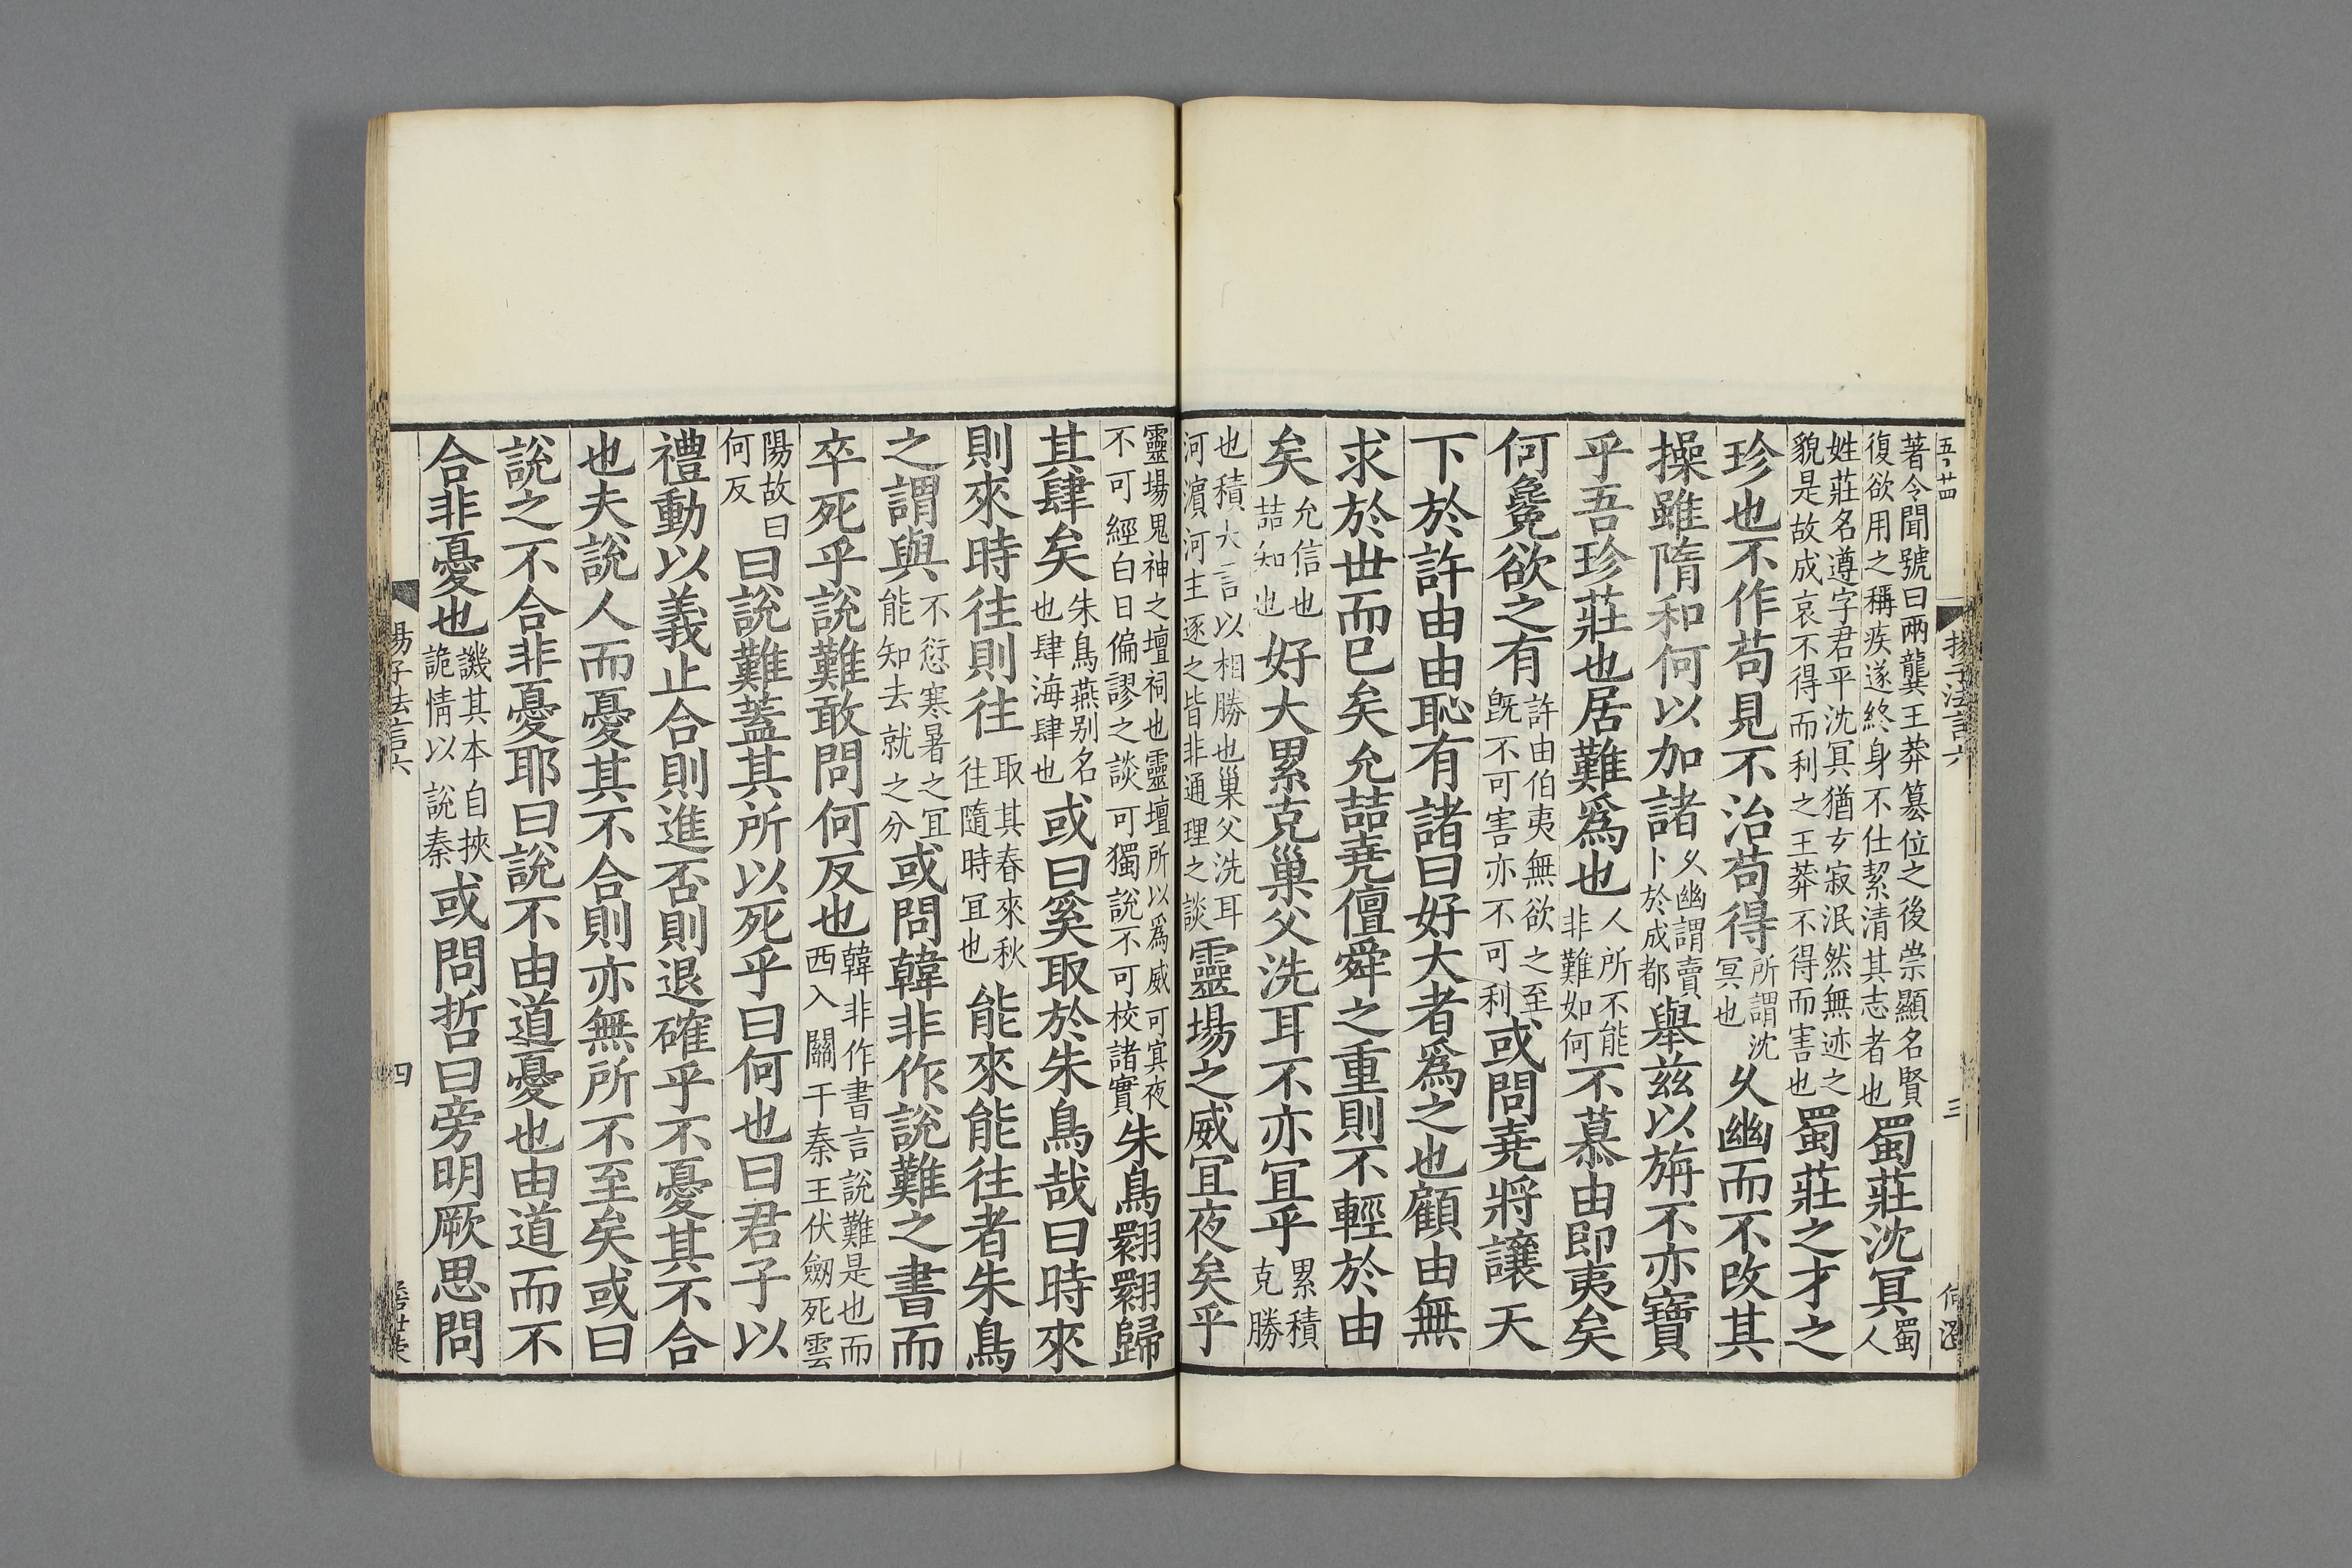 揚子法言六 三
著令聞號曰兩龔王莽篡位之後崇顯名賢復欲用之稱疾遂終身不仕絜清其志者也蜀莊沈冥蜀人
姓莊名遵字君平沈冥猶玄寂泯然無迹之貌是故成哀不得而利之王莽不得而害也蜀莊之才之
珍也不作苟見不治苟得所謂沈冥也久幽而不改其
操雖隋和何以加諸久幽謂賣卜於成都舉兹以旃不亦寶
乎吾珍莊也居難爲也人所不能非難如何不慕由即夷矣
何毚欲之有許由伯夷無欲之至旣不可害亦不可利或問堯將讓天
下於許由由恥有諸曰好大者爲之也顧由無
求於世而已矣允喆堯儃舜之重則不輕於由
矣允信也喆知也好大累克巢父洗耳不亦冝乎累積克勝
也積大言以相勝也巢父洗耳河濵河主逐之皆非通理之談靈場之威冝夜矣乎
靈場鬼神之壇祠也靈壇所以爲威可冥夜不可經白日偏謬之談可獨說不可校諸實朱鳥翾翾歸
其肆矣朱鳥燕别名也肆海肆也或曰奚取於朱鳥哉曰時來
則來時往則往取其春來秋往隨時冝也能來能往者朱鳥
之謂與不愆寒暑之冝能知去就之分或問韓非作說難之書而
卒死乎說難敢問何反也韓非作書言說難是也而西入關干秦王伏劒死雲
陽故曰何反曰說難蓋其所以死乎曰何也曰君子以
禮動以義止合則進否則退確乎不憂其不合
也夫說人而憂其不合則亦無所不至矣或曰
說之不合非憂耶曰說不由道憂也由道而不
合非憂也譏其本自挾詭情以說秦或問哲曰旁明厥思問
揚子法言六 四